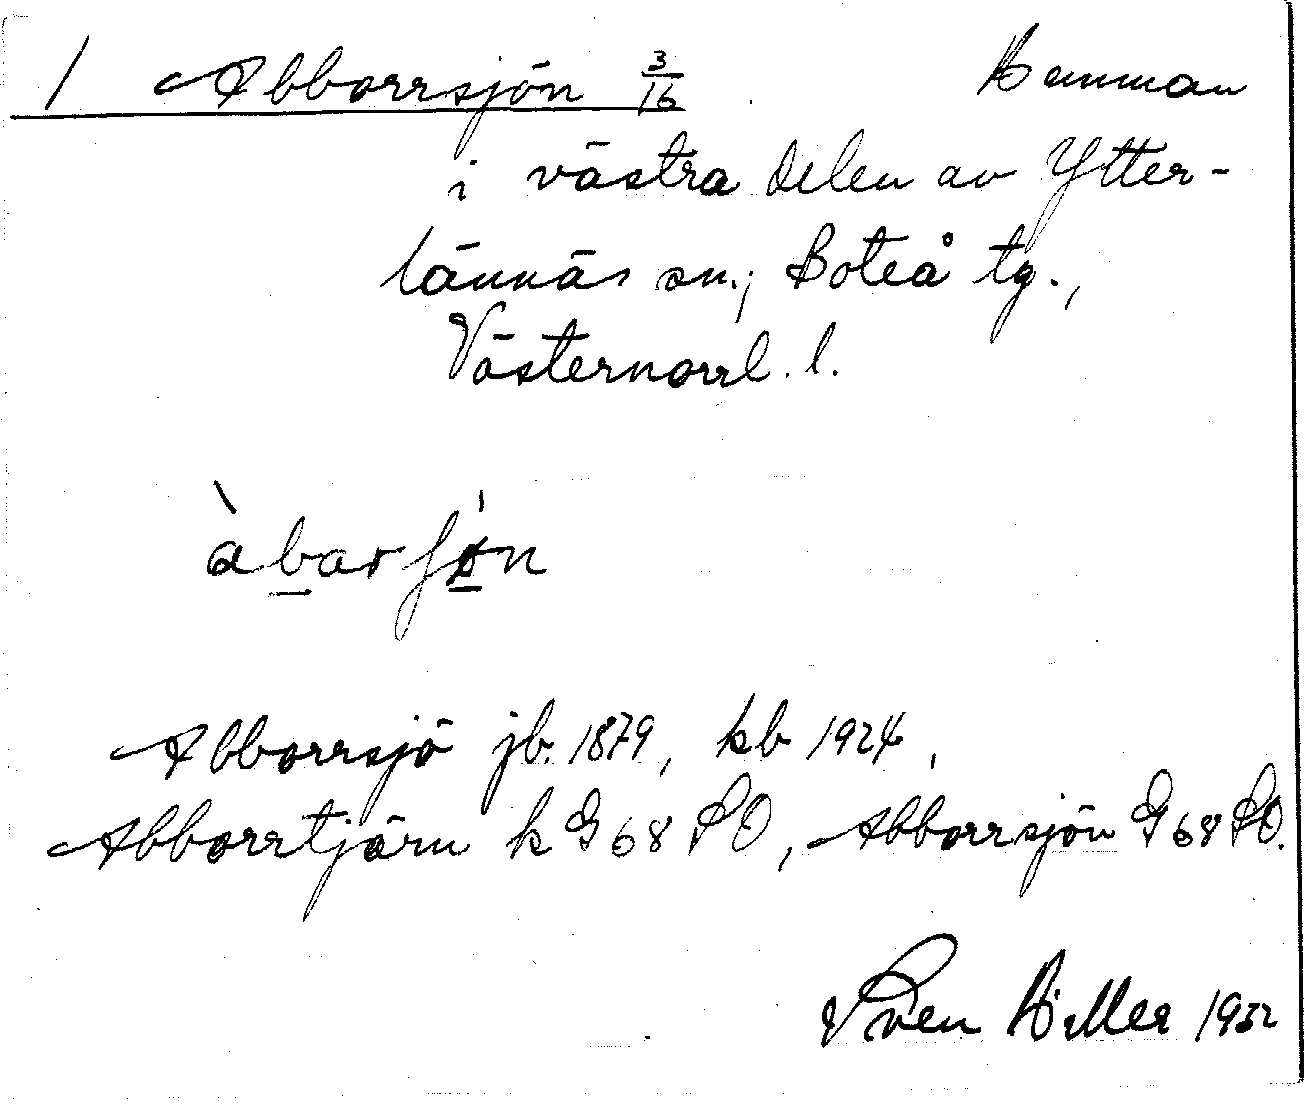 1 Abborrsjön 3/16 Hemman
i västra delen av Ytter-
lännäs sn.; Boteå tg.,
Västernorrl. l.
àbarʃø̀n
Abborrsjö jb. 1879, kb 1924,
Abborrtjärn k G 68 SO, Abborrsjön G 68 SO.
Sven Hiller 1932